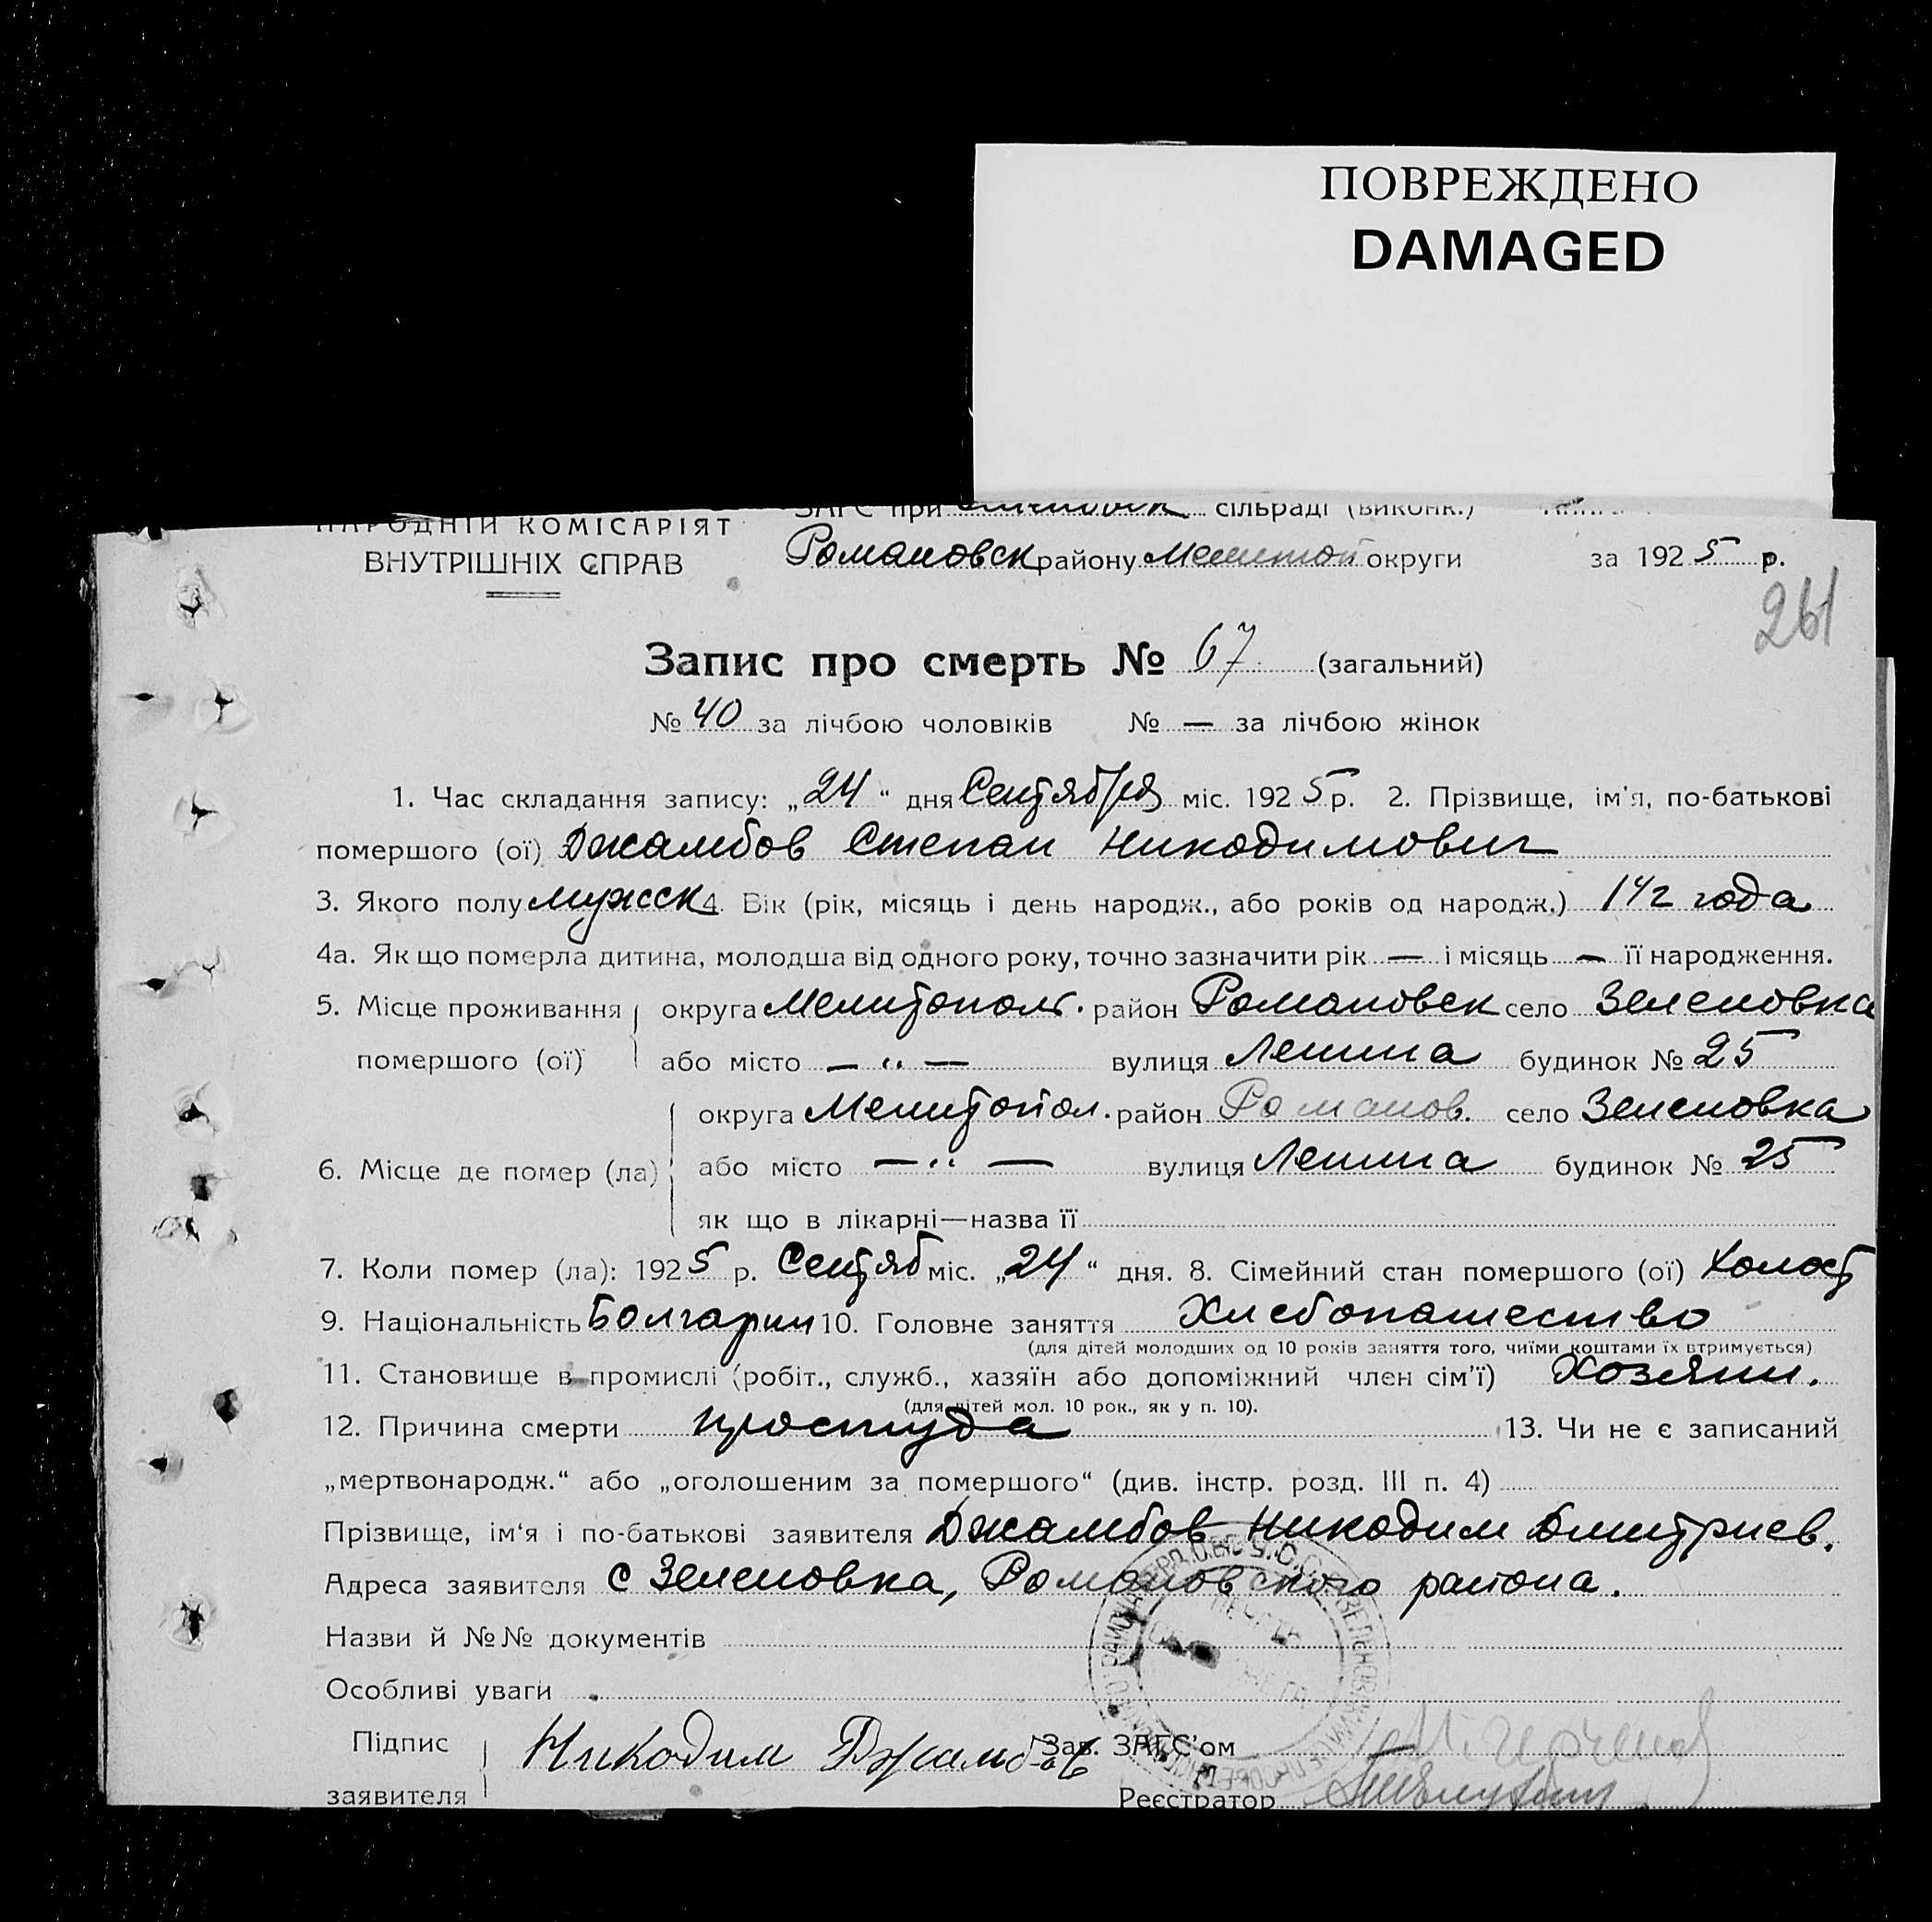 ПОВРЕЖДЕНО
DAMAGED
НАРОДНІЙ КОМІСАРІЯТ
ВНУТРІШНІХ СПРАВ
ЗАГС при сільраді (виконк.)
Романовск району Мелитоп округи за 1925 р.
261
Запис про смерть № 67 (загальний)
№ 40 за лічбою чоловіків № — за лічбою жінок
1. Час складання запису: „24“ дня Сентября міс. 1925 р. 2. Прізвище, ім'я, по-батькові
помершого (ої) Джамбов Степан Никодимович
3. Якого полу мужск 4. Вік (рік, місяць і день народж., або років од народж.) 1 1/2 года
4а. Як що померла дитина, молодша від одного року, точно зазначити рік — і місяць — її народження.
5. Місце проживання округа Мелитополь. район Романовск село Зеленовка
помершого (ої) або місто — „ — вулиця Ленина будинок № 25
округа Мелитопол. район Романов. село Зеленовка
6. Місце де помер (ла) або місто — „ — вулиця Ленина будинок № 25
як що в лікарні—назва її
7. Коли помер (ла): 1925 р. Сентяб міс. „24“ дня. 8. Сімейний стан помершого (ої) Холост
9. Національність Болгарин 10. Головне заняття Хлебопашество
(для дітей молодших од 10 років заняття того, чиїми коштами їх втримується)
11. Становище в промислі (робіт., служб., хазяїн або допоміжний член сім'ї) Хозяин.
(для дітей мол. 10 рок., як у п. 10).
12. Причина смерти простуда 13. Чи не є записаний
„мертвонародж.“ або „оголошеним за помершого“ (див. інстр. розд. III п. 4)
Прізвище, ім'я і по-батькові заявителя Джамбов Никодим Дмитриев.
Адреса заявителя с Зеленовка, Романовского района.
Назви й №№ документів
Особливі уваги
Підпис Никодим Джамбов Зав. ЗАГС'ом
заявителя Реєстратор